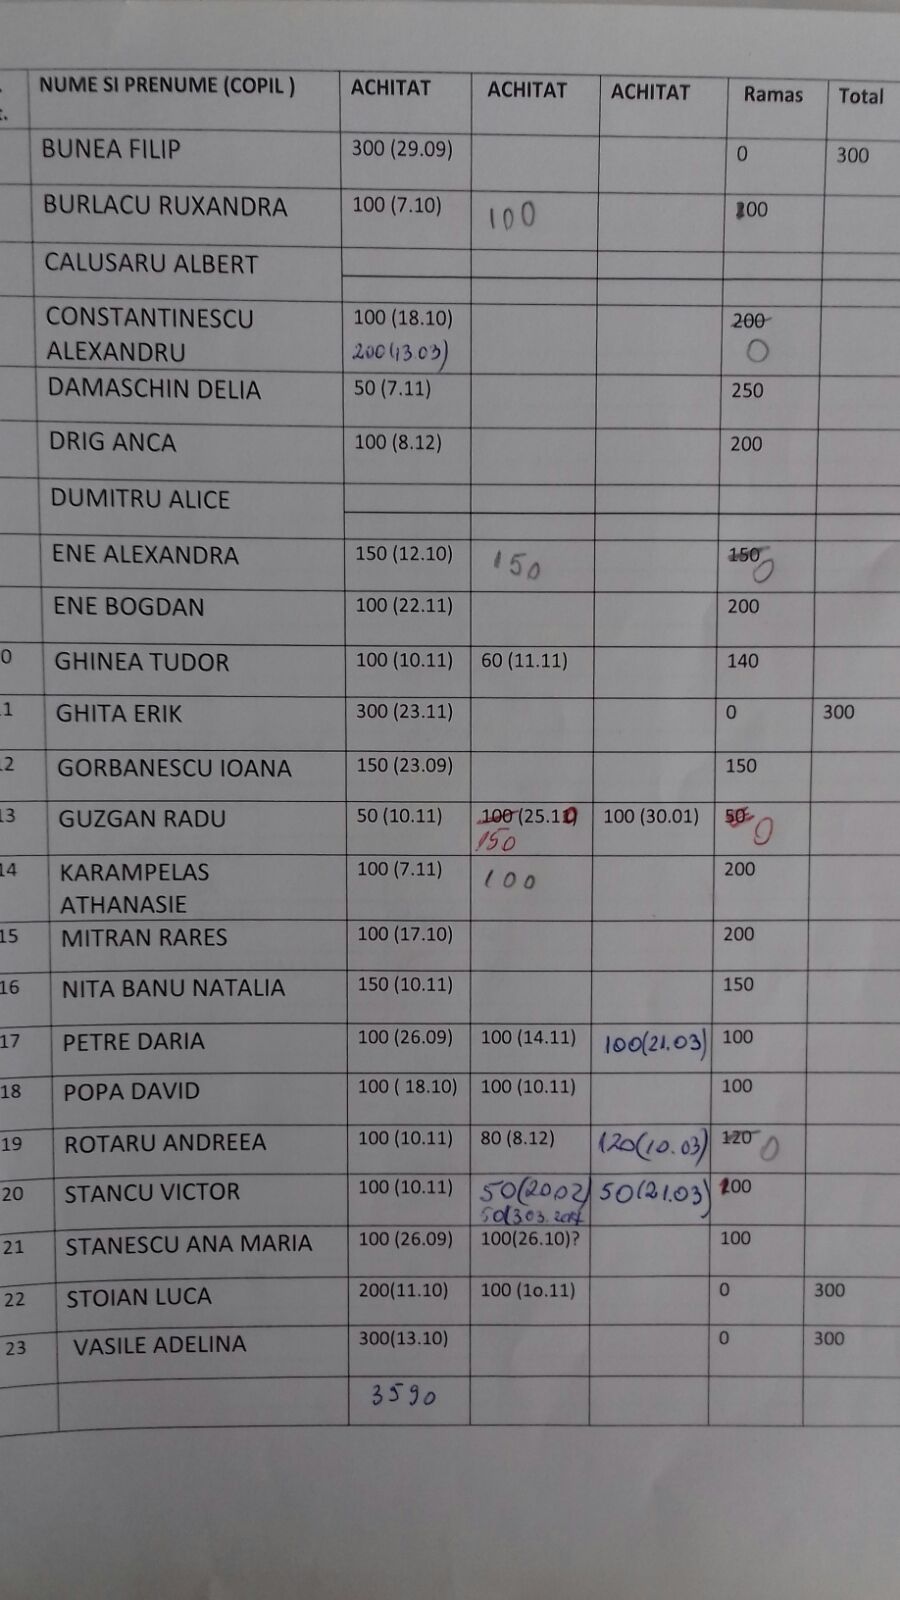 NUME SI PRENUME (COPIL ) ACHITAT ACHITAT ACHITAT Ramas Total
BUNEA FILIP 300 (29.09) 0 300
BURLACU RUXANDRA 100 (7.10) 100 100
CALUSARU ALBERT
CONSTANTINESCU 100 (18.10) 200
ALEXANDRU 200(13.03) 0
DAMASCHIN DELIA 50 (7.11) 250
DRIG ANCA 100 (8.12) 200
DUMITRU ALICE
ENE ALEXANDRA 150 (12.10) 150 150 0
ENE BOGDAN 100 (22.11) 200
0 GHINEA TUDOR 100 (10.11) 60 (11.11) 140
1 GHITA ERIK 300 (23.11) 0 300
2 GORBANESCU IOANA 150 (23.09) 150
13 GUZGAN RADU 50 (10.11) 100 (25.10) 100 (30.01) 50 0
150
14 KARAMPELAS 100 (7.11) 100 200
ATHANASIE
15 MITRAN RARES 100 (17.10) 200
16 NITA BANU NATALIA 150 (10.11) 150
17 PETRE DARIA 100 (26.09) 100 (14.11) 100(21.03) 100
18 POPA DAVID 100 ( 18.10) 100 (10.11) 100
19 ROTARU ANDREEA 100 (10.11) 80 (8.12) 120(10.03) 120 0
20 STANCU VICTOR 100 (10.11) 50(20.02) 50(21.03) 100
21 STANESCU ANA MARIA 100 (26.09) 100(26.10)? 100
22 STOIAN LUCA 200(11.10) 100 (1o.11) 0 300
23 VASILE ADELINA 300(13.10) 0 300
3590